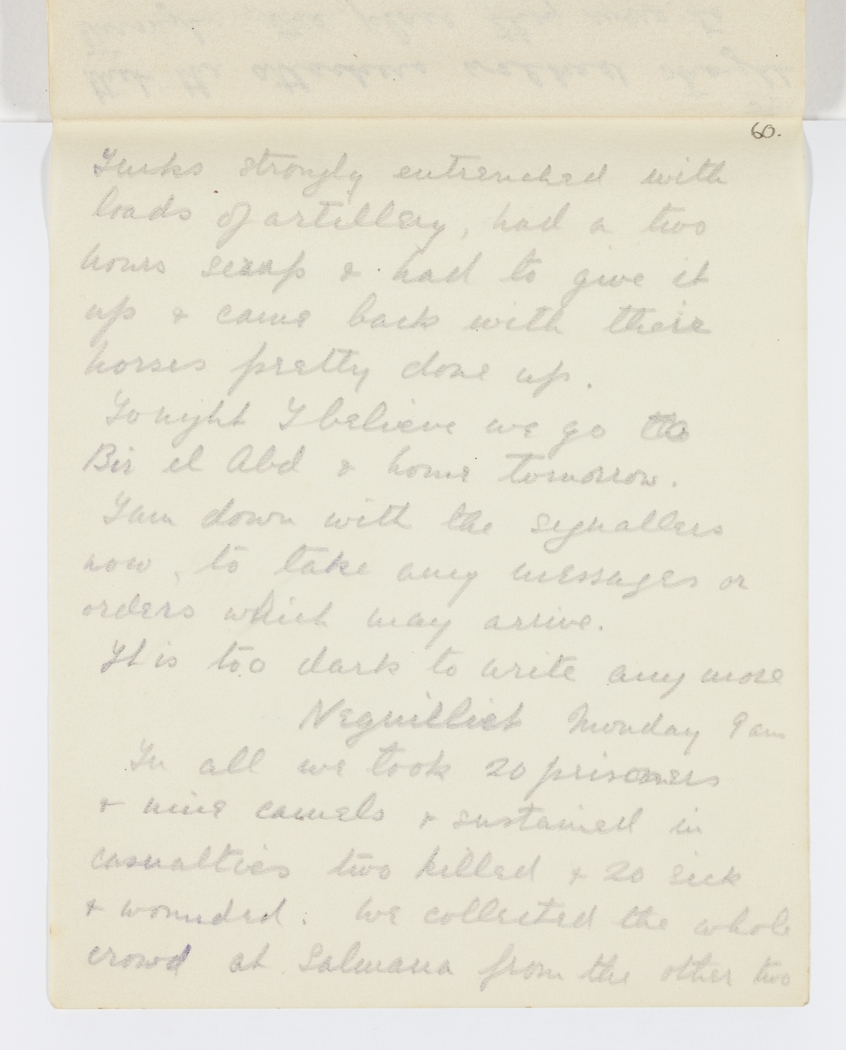 60.
Turks strongly entrenched with
loads of artillery, had a two
hours scrap & had to give it
up & came back with their
horses pretty done up.
Tonight I believe we go to
Bir el Abd & home tomorrow.
I am down with the signallers
now, to take any messages or
orders which may arrive.
It is too dark to write any more
Monday 9 am
In all we took 20 prisoners
& nine camels & sustained in
casualties two killed & 20 sick
& wounded. We collected the whole
crowd at Salmana from the other two